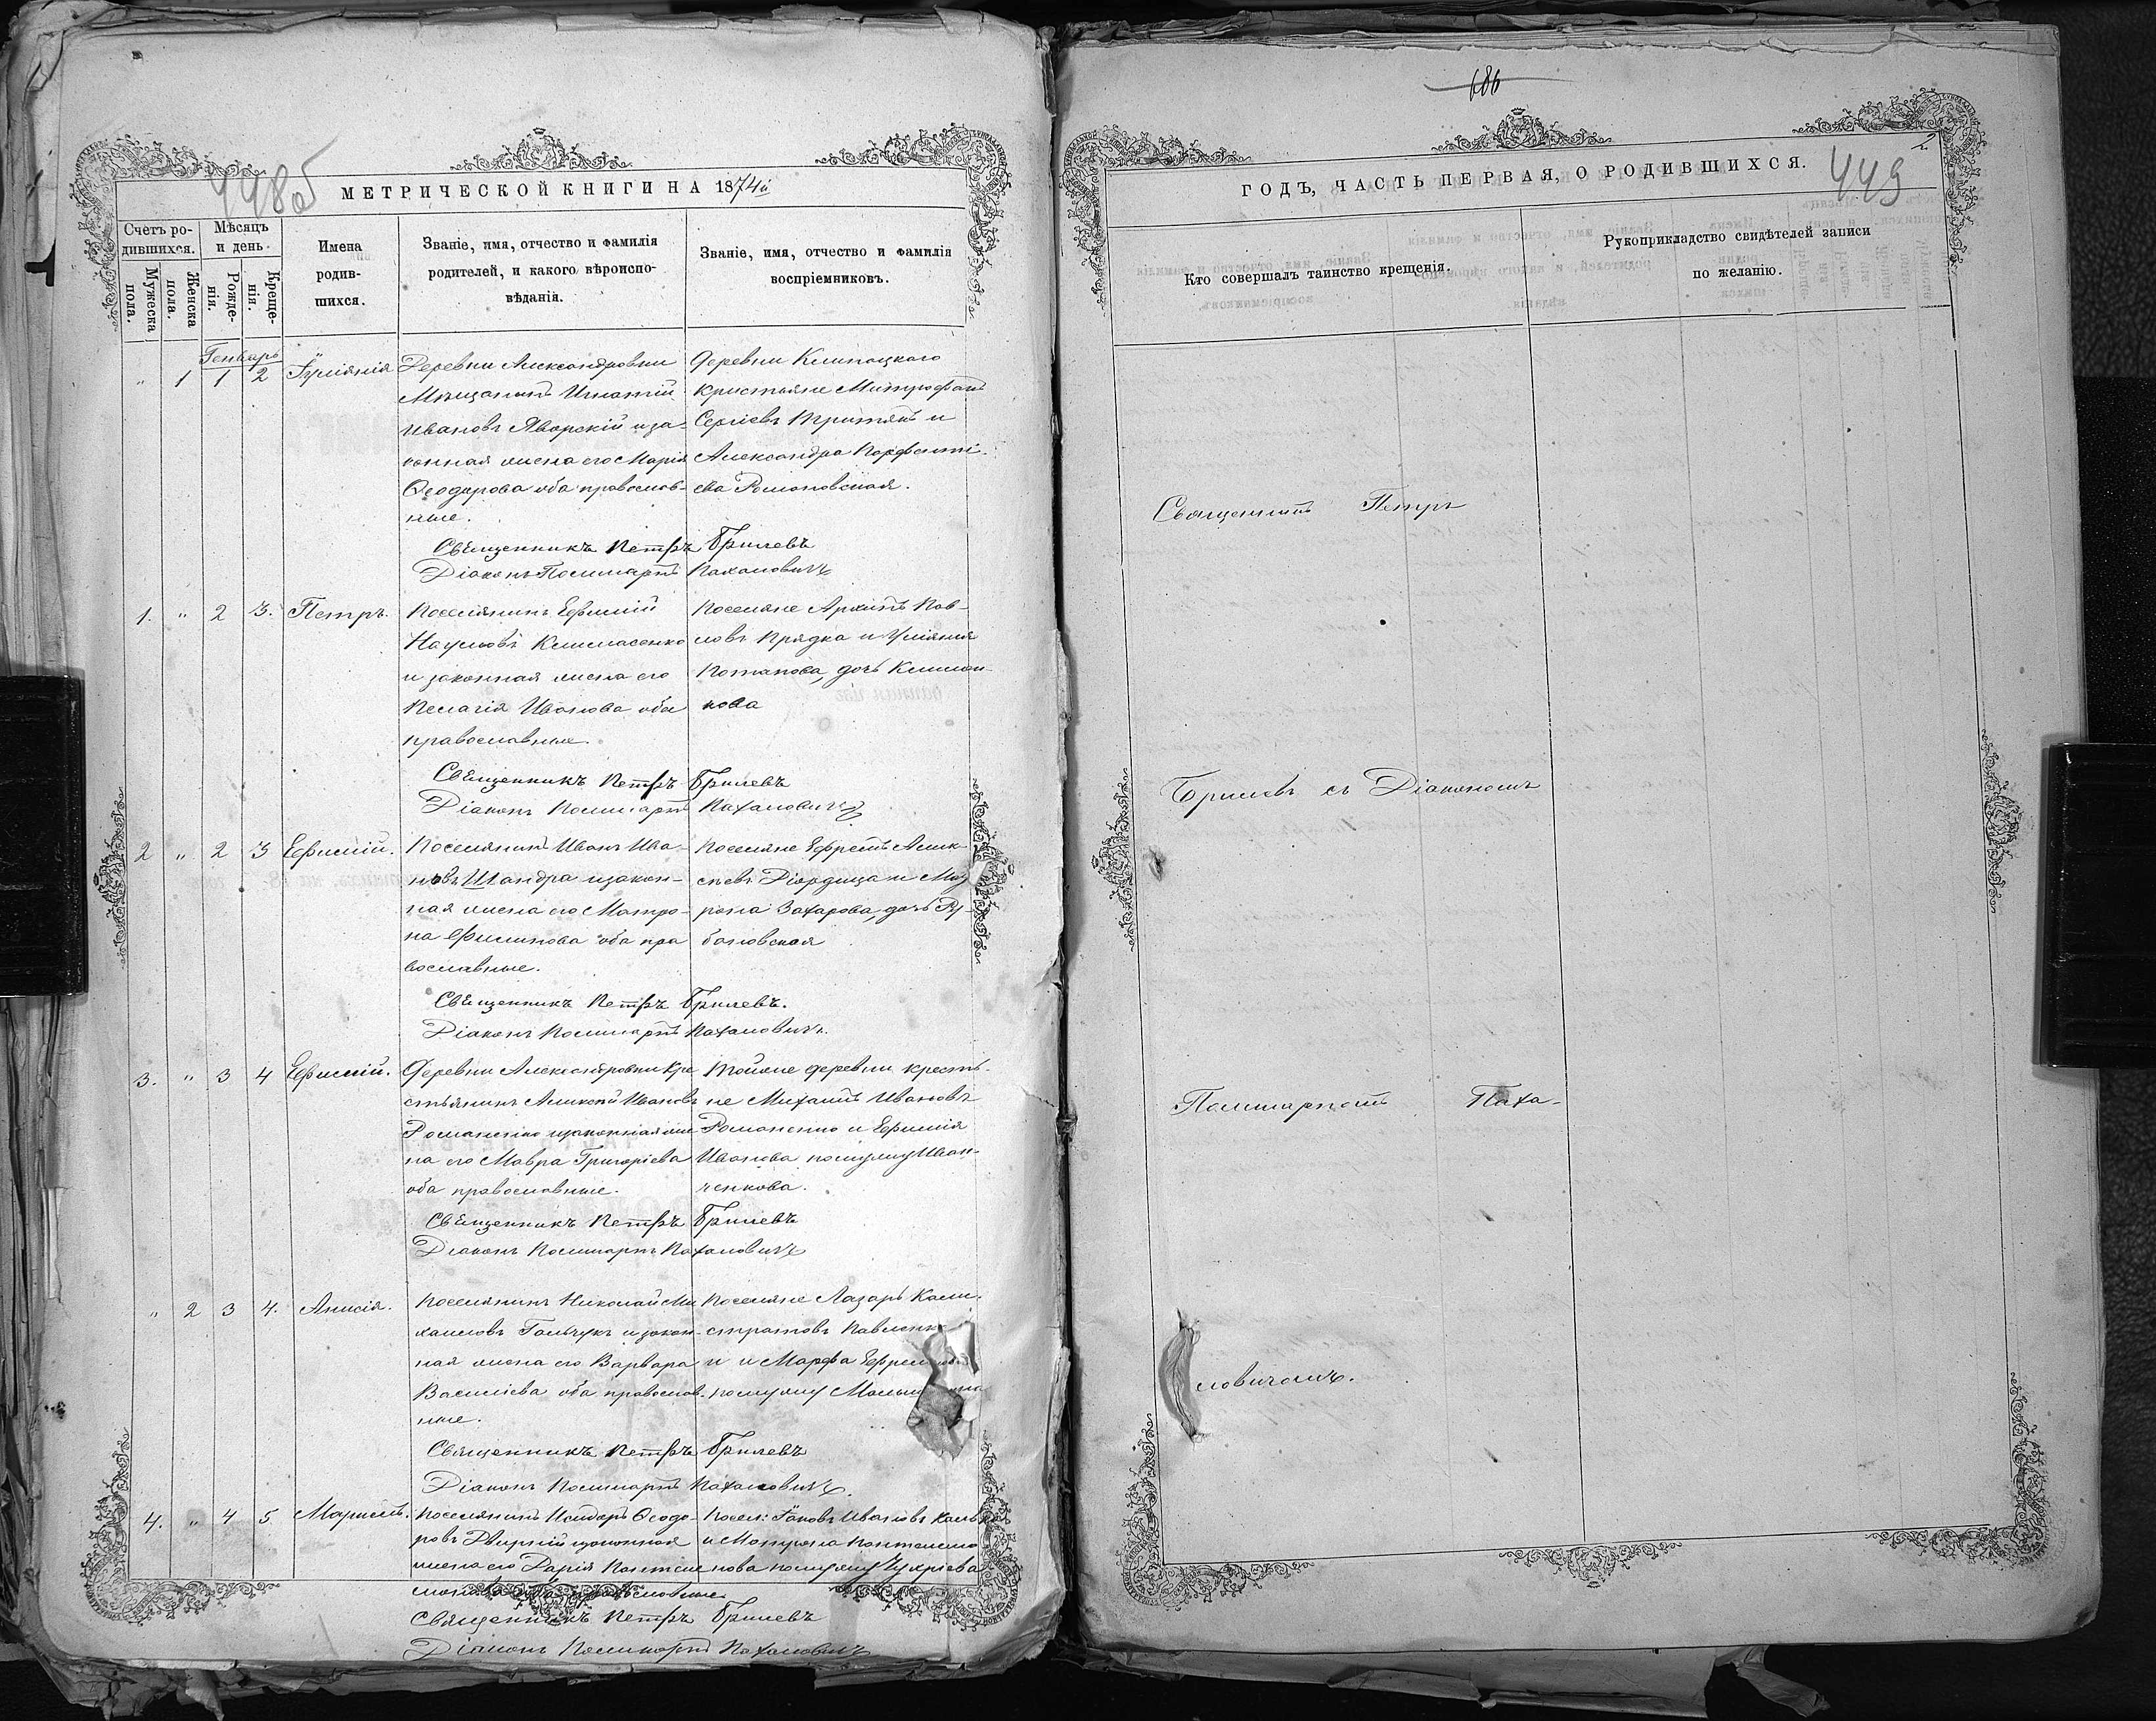 448об
МЕТРИЧЕСКОЙ КНИГИ НА 1874й
Счетъ ро-
дившихся.
Мѣсяцъ
и день.
Мужеска
пола.
Женска
пола.
Рожде-
нія.
Креще-
нія.
Имена
родив-
шихся.
Званіе, имя, отчество и фамилія
родителей, и какого вѣроиспо-
вѣданія.
Званіе, имя, отчество и фамилія
воспріемниковъ.
Генварь
" 1 1 2
Деревни Александровки
Мѣщанинъ Игнатій
Ивановъ Яворскій и за-
конная жена его Марія
Ѳеодорова оба православ-
ные.
деревни
крестьяне Митрофанъ
Сергіевъ и
Александра Парфенті-
ева Романовская.
Священникъ Петръ Брилевъ
Діаконъ Поликарпъ Пахаловичъ
1. " 2 3. Петръ.
Поселянинъ Ефимій
Наумовъ Климасенко
и законная жена его
Пелагія Иванова оба
православные.
Поселяне Архипъ Пав-
ловъ Прядка и Уліянія
Потапова, дочь Климен-
кова
Священникъ Петръ Брилевъ
Діаконъ Поликарпъ Пахаловичъ
2 " 2 3 Ефимій.
Поселянинъ Иванъ Ива-
новъ Шандра и закон-
ная жена его Матро-
на Филипова оба пра
вославные.
Поселяне Ефремъ Алек-
сеевъ Діордица и Мат
рона Захарова, дочь Ру-
бановская
Священникъ Петръ Брилевъ.
Діаконъ Поликарпъ Пахаловичъ.
3. " 3 4 Ефимій.
Деревни Александровки Кре
стьянинъ Алексѣй Ивановъ
Романенко и законная же
на его Мавра Григоріева
оба православные.
Тойже деревни кресть-
не Михаилъ Ивановъ
Романенко и Ефимія
Иванова помужу Иван-
ченкова.
Священникъ Петръ Брилевъ
Діаконъ Поликарпъ Пахаловичъ
" 2 3 4. Анисія.
Поселянинъ Николай Ми
хаиловъ Гальчукъ и закон-
ная жена его Варвара
Василіева оба православ-
ные.
Поселяне Лазарь Кали-
стратовъ
и Марфа
помужу
Священникъ Петръ Брилевъ
Діаконъ Поликарпъ Пахаловичъ.
4. " 4 5
Поселянинъ Исидоръ Ѳеодо-
ровъ и законная
жена его Дарія Пантеле
православные
Посел: Іаковъ Ивановъ
и Матрона Пантелемо
нова помужу Чухріева
Священникъ Петръ Брилевъ
Діаконъ Поликарпъ Пахаловичъ
686
449
ГОДЪ, ЧАСТЬ ПЕРВАЯ, О РОДИВШИХСЯ.
2.
Кто совершалъ таинство крещенія.
Рукоприкладство свидѣтелей записи
по желанію.
Священникъ Петръ
Брилевъ съ Діакономъ
Поликарпомъ Паха-
ловичомъ.